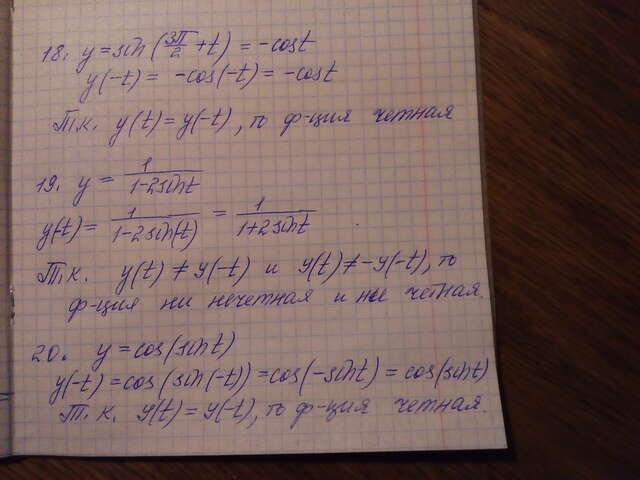 18. y = sin(3π/2 + t) = -cost
y(-t) = -cos(-t) = -cost
Т.к. y(t) = y(-t), то ф-ция четная
19. y = 1/(1-2sint)
y(-t) = 1/(1-2sin(-t)) = 1/(1+2sint)
Т.к. y(t) ≠ y(-t) и y(t) ≠ -y(-t), то
ф-ция ни нечетная и ни четная.
20. y = cos(sint)
y(-t) = cos(sin(-t)) = cos(-sint) = cos(sint)
Т.к. y(t) = y(-t), то ф-ция четная.